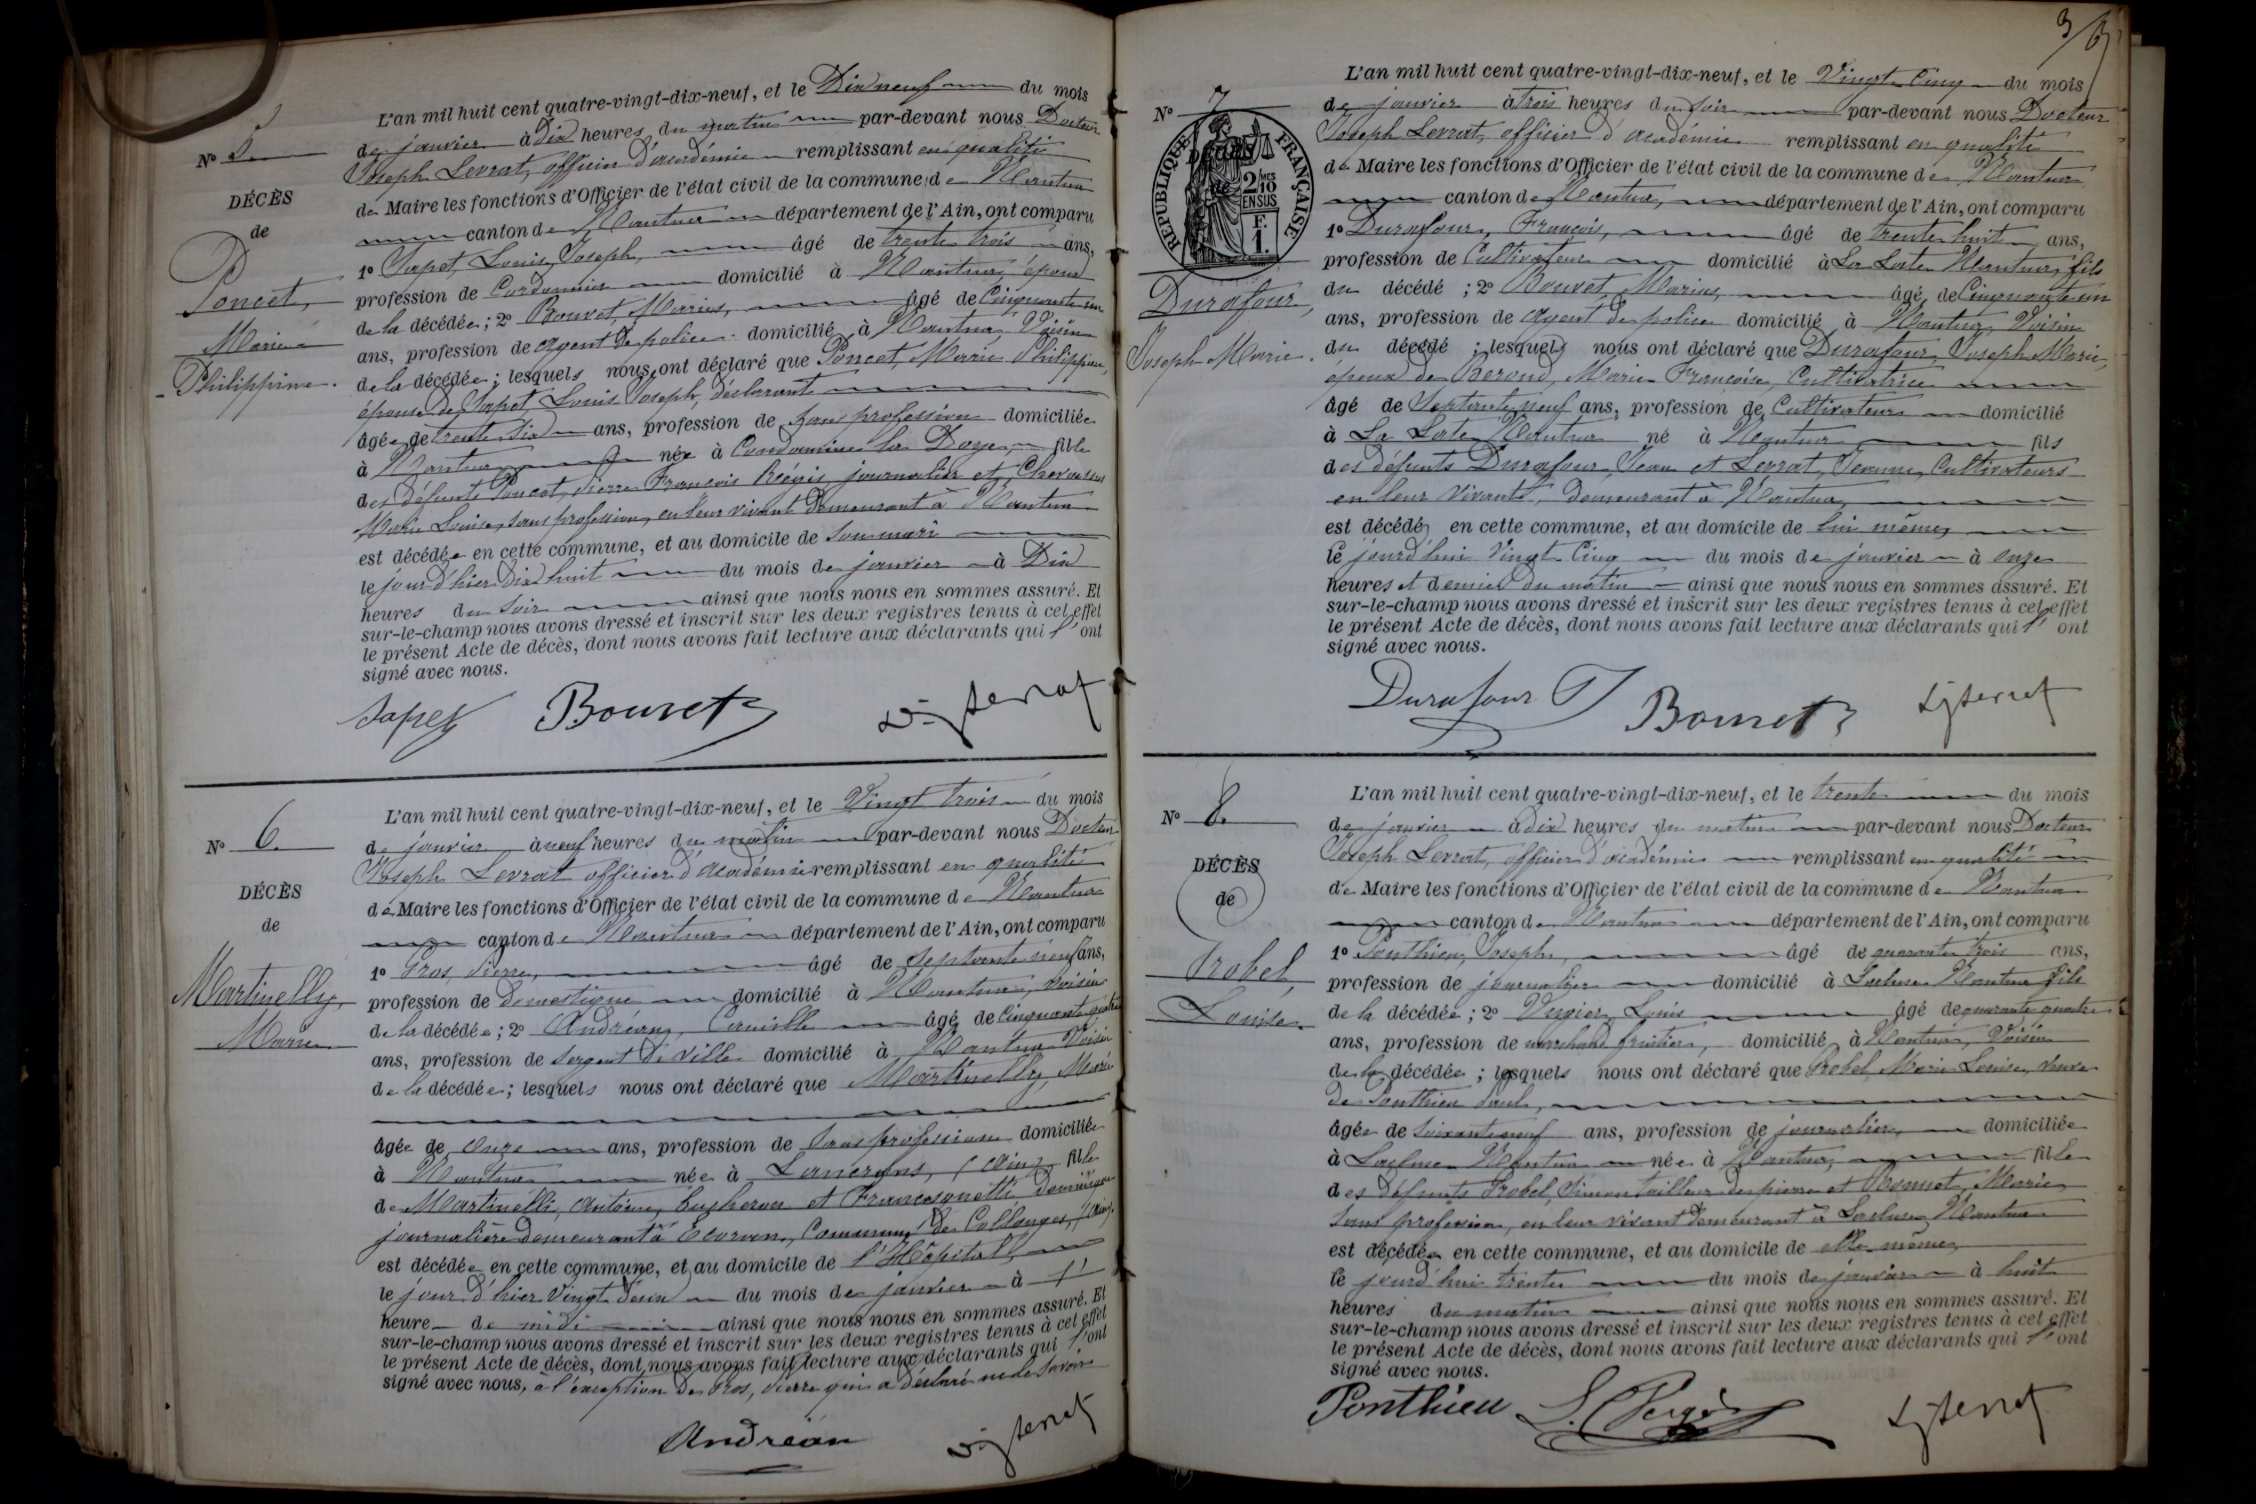 N° 5
DÉCÈS
de
Poncet,
Marie
Philippine.
L'an mil huit cent quatre-vingt-dix-neuf, et le Dix neuf du mois
de janvier à Dix heures du matin par-devant nous Docteur
Joseph Levrat, officier d'académie remplissant en qualité
de Maire les fonctions d'Officier de l'état civil de la commune de Nantua
canton de Nantua département de l'Ain, ont comparu
1° Sapet, Louis Joseph, âgé de trente trois ans,
profession de Cordonnier domicilié à Nantua, époux
de la décédée; 2° Bouvet, Marius, âgé de Cinquante un
ans, profession de agent de police domicilié à Nantua Voisin
de la décédée; lesquels nous ont déclaré que Poncet, Marie Philippine,
épouse de Sapet Louis Joseph, déclarant
âgée de trente six ans, profession de sans profession domiciliée
à Nantua née à Condamine la Doye, fille
des défunts Poncet, Pierre François Régis, journalier et Chevassus
Marie Louise, sans profession, en leur vivant demeurant à Nantua
est décédée en cette commune, et au domicile de son mari
le jour d'hier Dix huit du mois de janvier à Dix
heures du soir ainsi que nous nous en sommes assuré. Et
sur-le-champ nous avons dressé et inscrit sur les deux registres tenus à cet effet
le présent Acte de décès, dont nous avons fait lecture aux déclarants qui l'ont
signé avec nous.
Sapet Bouvet Levrat
N° 6
DÉCÈS
de
Martinelly,
Marie
L'an mil huit cent quatre-vingt-dix-neuf, et le Vingt trois du mois
de janvier à neuf heures du matin par-devant nous Docteur
Joseph Levrat officier d'académie remplissant en qualité
de Maire les fonctions d'Officier de l'état civil de la commune de Nantua
canton de Nantua département de l'Ain, ont comparu
1° Gros, Pierre, âgé de septante neuf ans,
profession de Domestique domicilié à Nantua, voisin
de la décédée; 2° Andréan, Camille âgé de cinquante quatre
ans, profession de Sergent de ville domicilié à Nantua Voisin
de la décédée; lesquels nous ont déclaré que Martinelly, Marie
âgée de onze ans, profession de sans profession domiciliée
à Nantua née à Lancrans, (Ain) fille
de Martinelli, Antoine, et Dominique
journalière demeurant à Ecorans, Commune de Collonges, (Ain).
est décédée en cette commune, et au domicile de l'Hôpital
le jour d'hier Vingt deux du mois de janvier à l'
heure de midi ainsi que nous nous en sommes assuré. Et
sur-le-champ nous avons dressé et inscrit sur les deux registres tenus à cet effet
le présent Acte de décès, dont nous avons fait lecture aux déclarants qui l'ont
signé avec nous, à l'exception de Gros, Pierre qui a déclaré ne le savoir
Andréan Levrat
3
N° 7
RÉPUBLIQUE FRANÇAISE
2/10 MES
EN SUS
F.
1.
DÉCÈS
de
Durafour,
Joseph Marie.
L'an mil huit cent quatre-vingt-dix-neuf, et le Vingt Cinq du mois
de janvier à trois heures du soir par-devant nous Docteur
Joseph Levrat, officier d'académie remplissant en qualité
de Maire les fonctions d'Officier de l'état civil de la commune de Nantua
canton de Nantua, département de l'Ain, ont comparu
1° Durafour, François, âgé de trente huit ans,
profession de Cultivateur domicilié à La Nantua, fils
du décédé; 2° Bouvet Marius, âgé de Cinquante un
ans, profession de agent de police domicilié à Nantua, Voisin
du décédé; lesquels nous ont déclaré que Durafour, Joseph Marie,
époux de Berond, Marie Françoise, Cultivatrice
âgé de Septante neuf ans, profession de Cultivateur domicilié
à La Nantua né à Nantua fils
des défunts Durafour, Jean et Levrat, Jeanne, Cultivateurs
en leur vivants, demeurant à Nantua
est décédé en cette commune, et au domicile de lui même,
le jourd'hui Vingt Cinq du mois de janvier à onze
heures et demie du matin ainsi que nous nous en sommes assuré. Et
sur-le-champ nous avons dressé et inscrit sur les deux registres tenus à cet effet
le présent Acte de décès, dont nous avons fait lecture aux déclarants qui l'ont
signé avec nous.
Durafour F Bouvet Levrat
N° 8.
DÉCÈS
de
Probel,
Louise.
L'an mil huit cent quatre-vingt-dix-neuf, et le trente du mois
de janvier à dix heures du matin par-devant nous Docteur
Joseph Levrat, officier d'académie remplissant en qualité
de Maire les fonctions d'Officier de l'état civil de la commune de Nantua
canton de Nantua département de l'Ain, ont comparu
1° Ponthieu, Joseph, âgé de quarante trois ans,
profession de journalier domicilié à Nantua fils
de la décédée; 2° Louis âgé de quarante quatre
ans, profession de marchand fruitier, domicilié à Nantua, Voisin
de la décédée; lesquels nous ont déclaré que Probel, Marie Louise, veuve
de Ponthieu Paul,
âgée de soixante neuf ans, profession de journalière, domiciliée
à Nantua née à Nantua, fille
des défunts Probel, Simon tailleur de pierre et Marie
sans profession, en leur vivant demeurant à Nantua
est décédée en cette commune, et au domicile de elle même,
le jourd'hui trente du mois de janvier à huit
heures du matin ainsi que nous nous en sommes assuré. Et
sur-le-champ nous avons dressé et inscrit sur les deux registres tenus à cet effet
le présent Acte de décès, dont nous avons fait lecture aux déclarants qui l'ont
signé avec nous.
Ponthieu Levrat